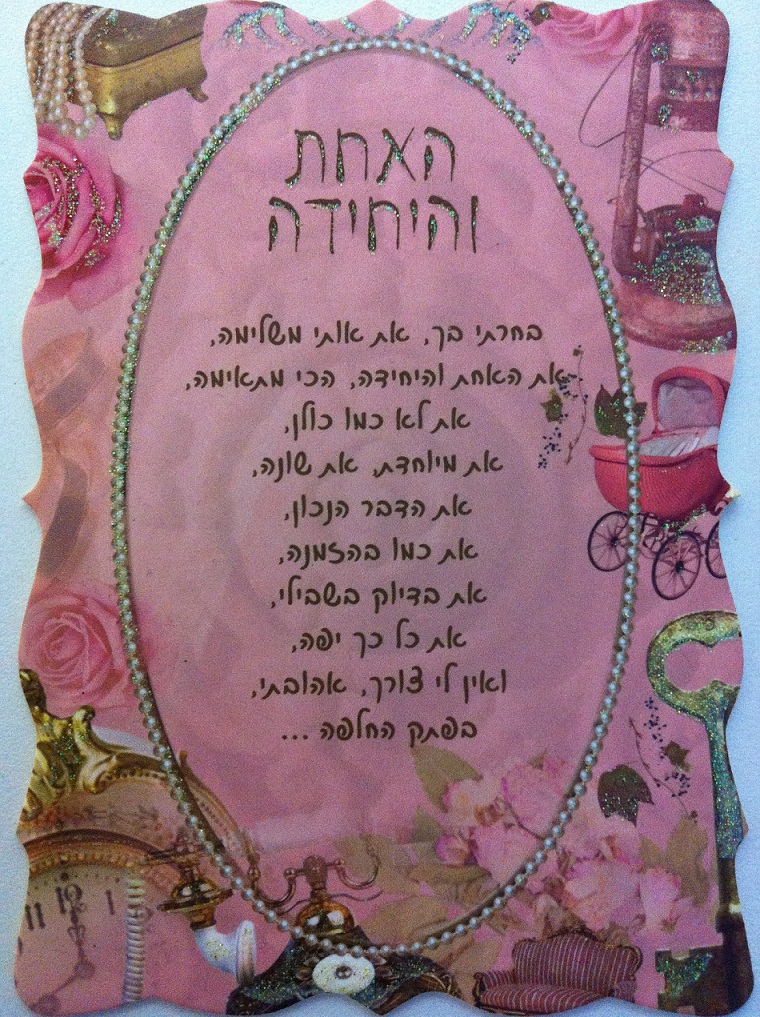 האחת
והיחידה
בחרתי בך, את אותי משלימה,
את האחת והיחידה, הכי מתאימה,
את לא כמו כולן,
את מיוחדת, את שונה,
את הדבר הנכון,
את כמו בהזמנה,
את בדיוק בשבילי,
את כל כך יפה,
ואין לי צורך, אהובתי,
בפתק החלפה ...
11
12
1